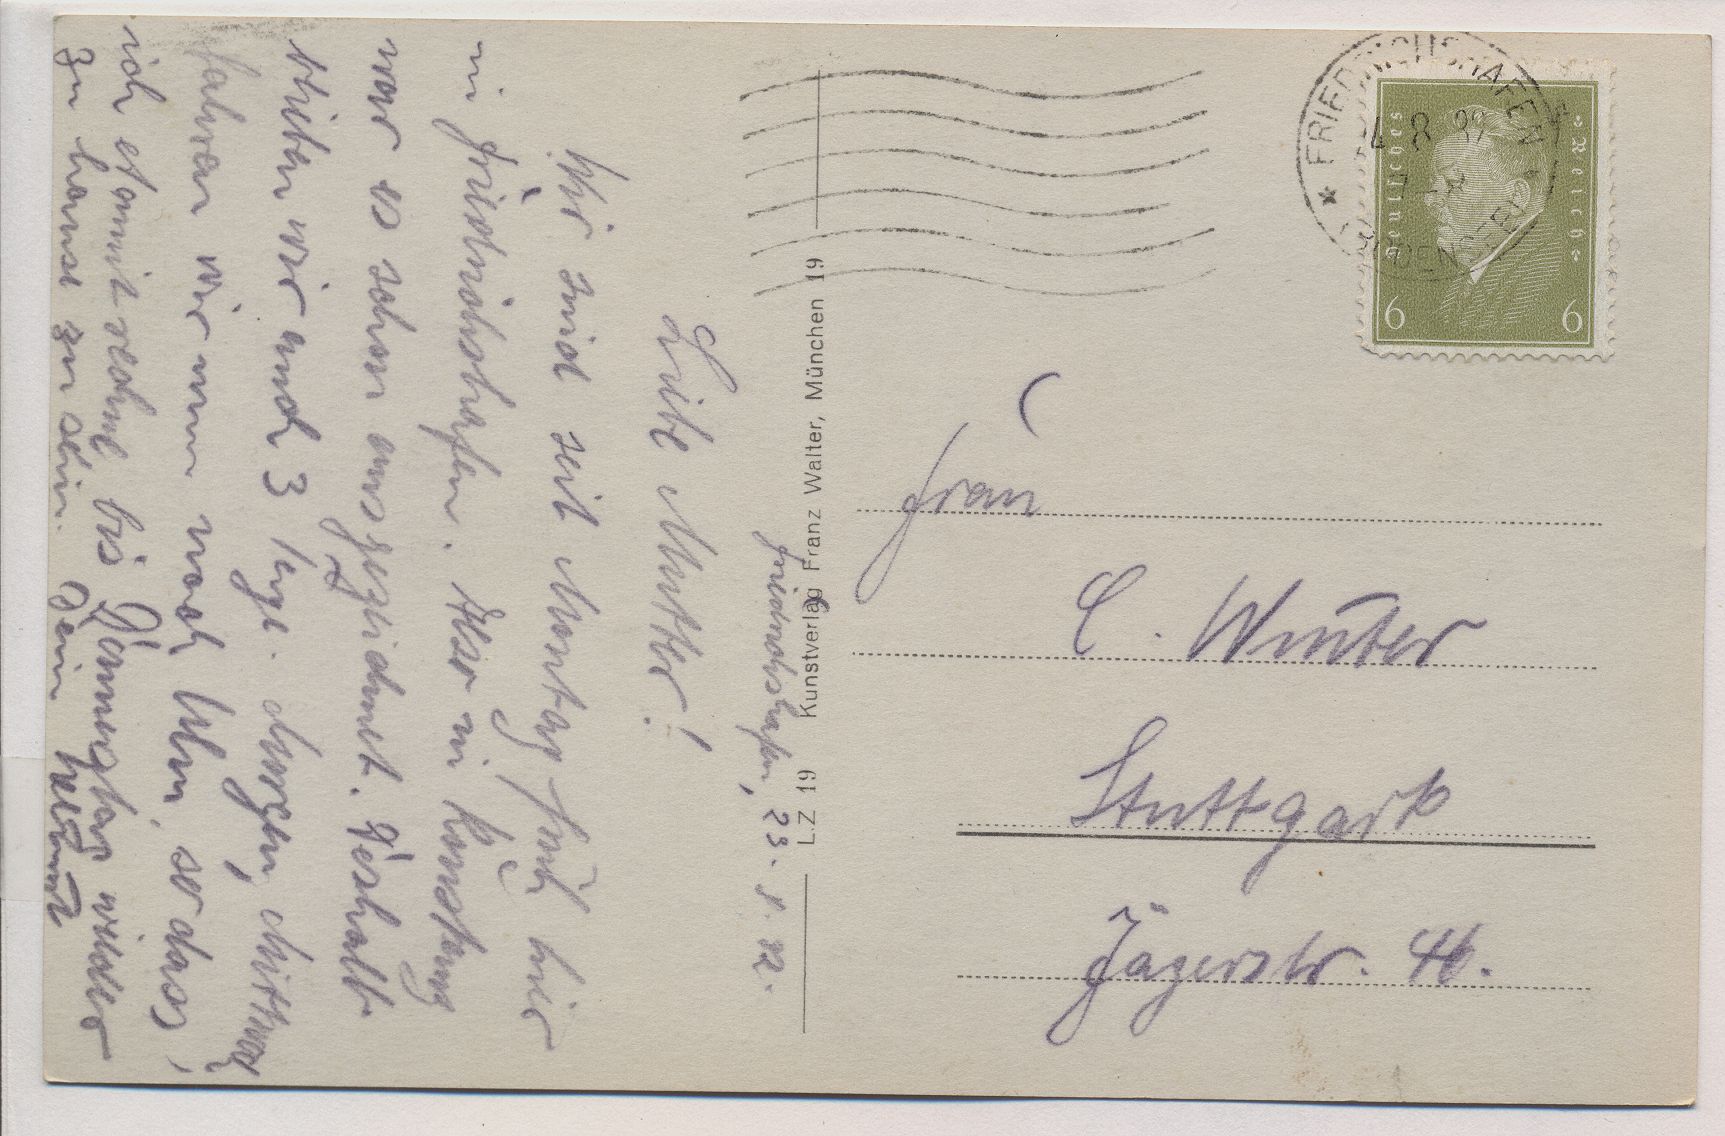 Friedrichshafen, 23. 8. 32.
Liebe Mutter!
Wir sind seit Montag früh hier
in Friedrichshafen. Also in Konstanz
war es schon ausgezeichnet. Deshalb
blieben wir auch 3 Tage. Morgen, Mittwoch
fahren wir nun nach Ulm, so dass
ich damit rechne bis Donnerstag wieder
zu hause zu sein. Dein Helmut
LZ 19 Kunstverlag Franz Walter, München 19
FRIEDRICHSHAFEN
(BODENSEE)
Deutsches Reich
6 6
Frau
E. Winter
Stuttgart
Jägerstr.